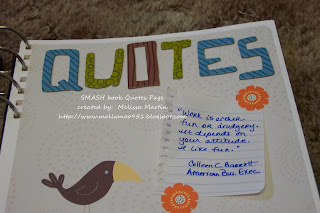 QUOTES
SMASH book Quotes Page
created by: Melissa Martin
"Work is either
fun or drudgery.
It depends on
your attitude.
I like fun."
Colleen C. Barrett
American Bus. Exec.